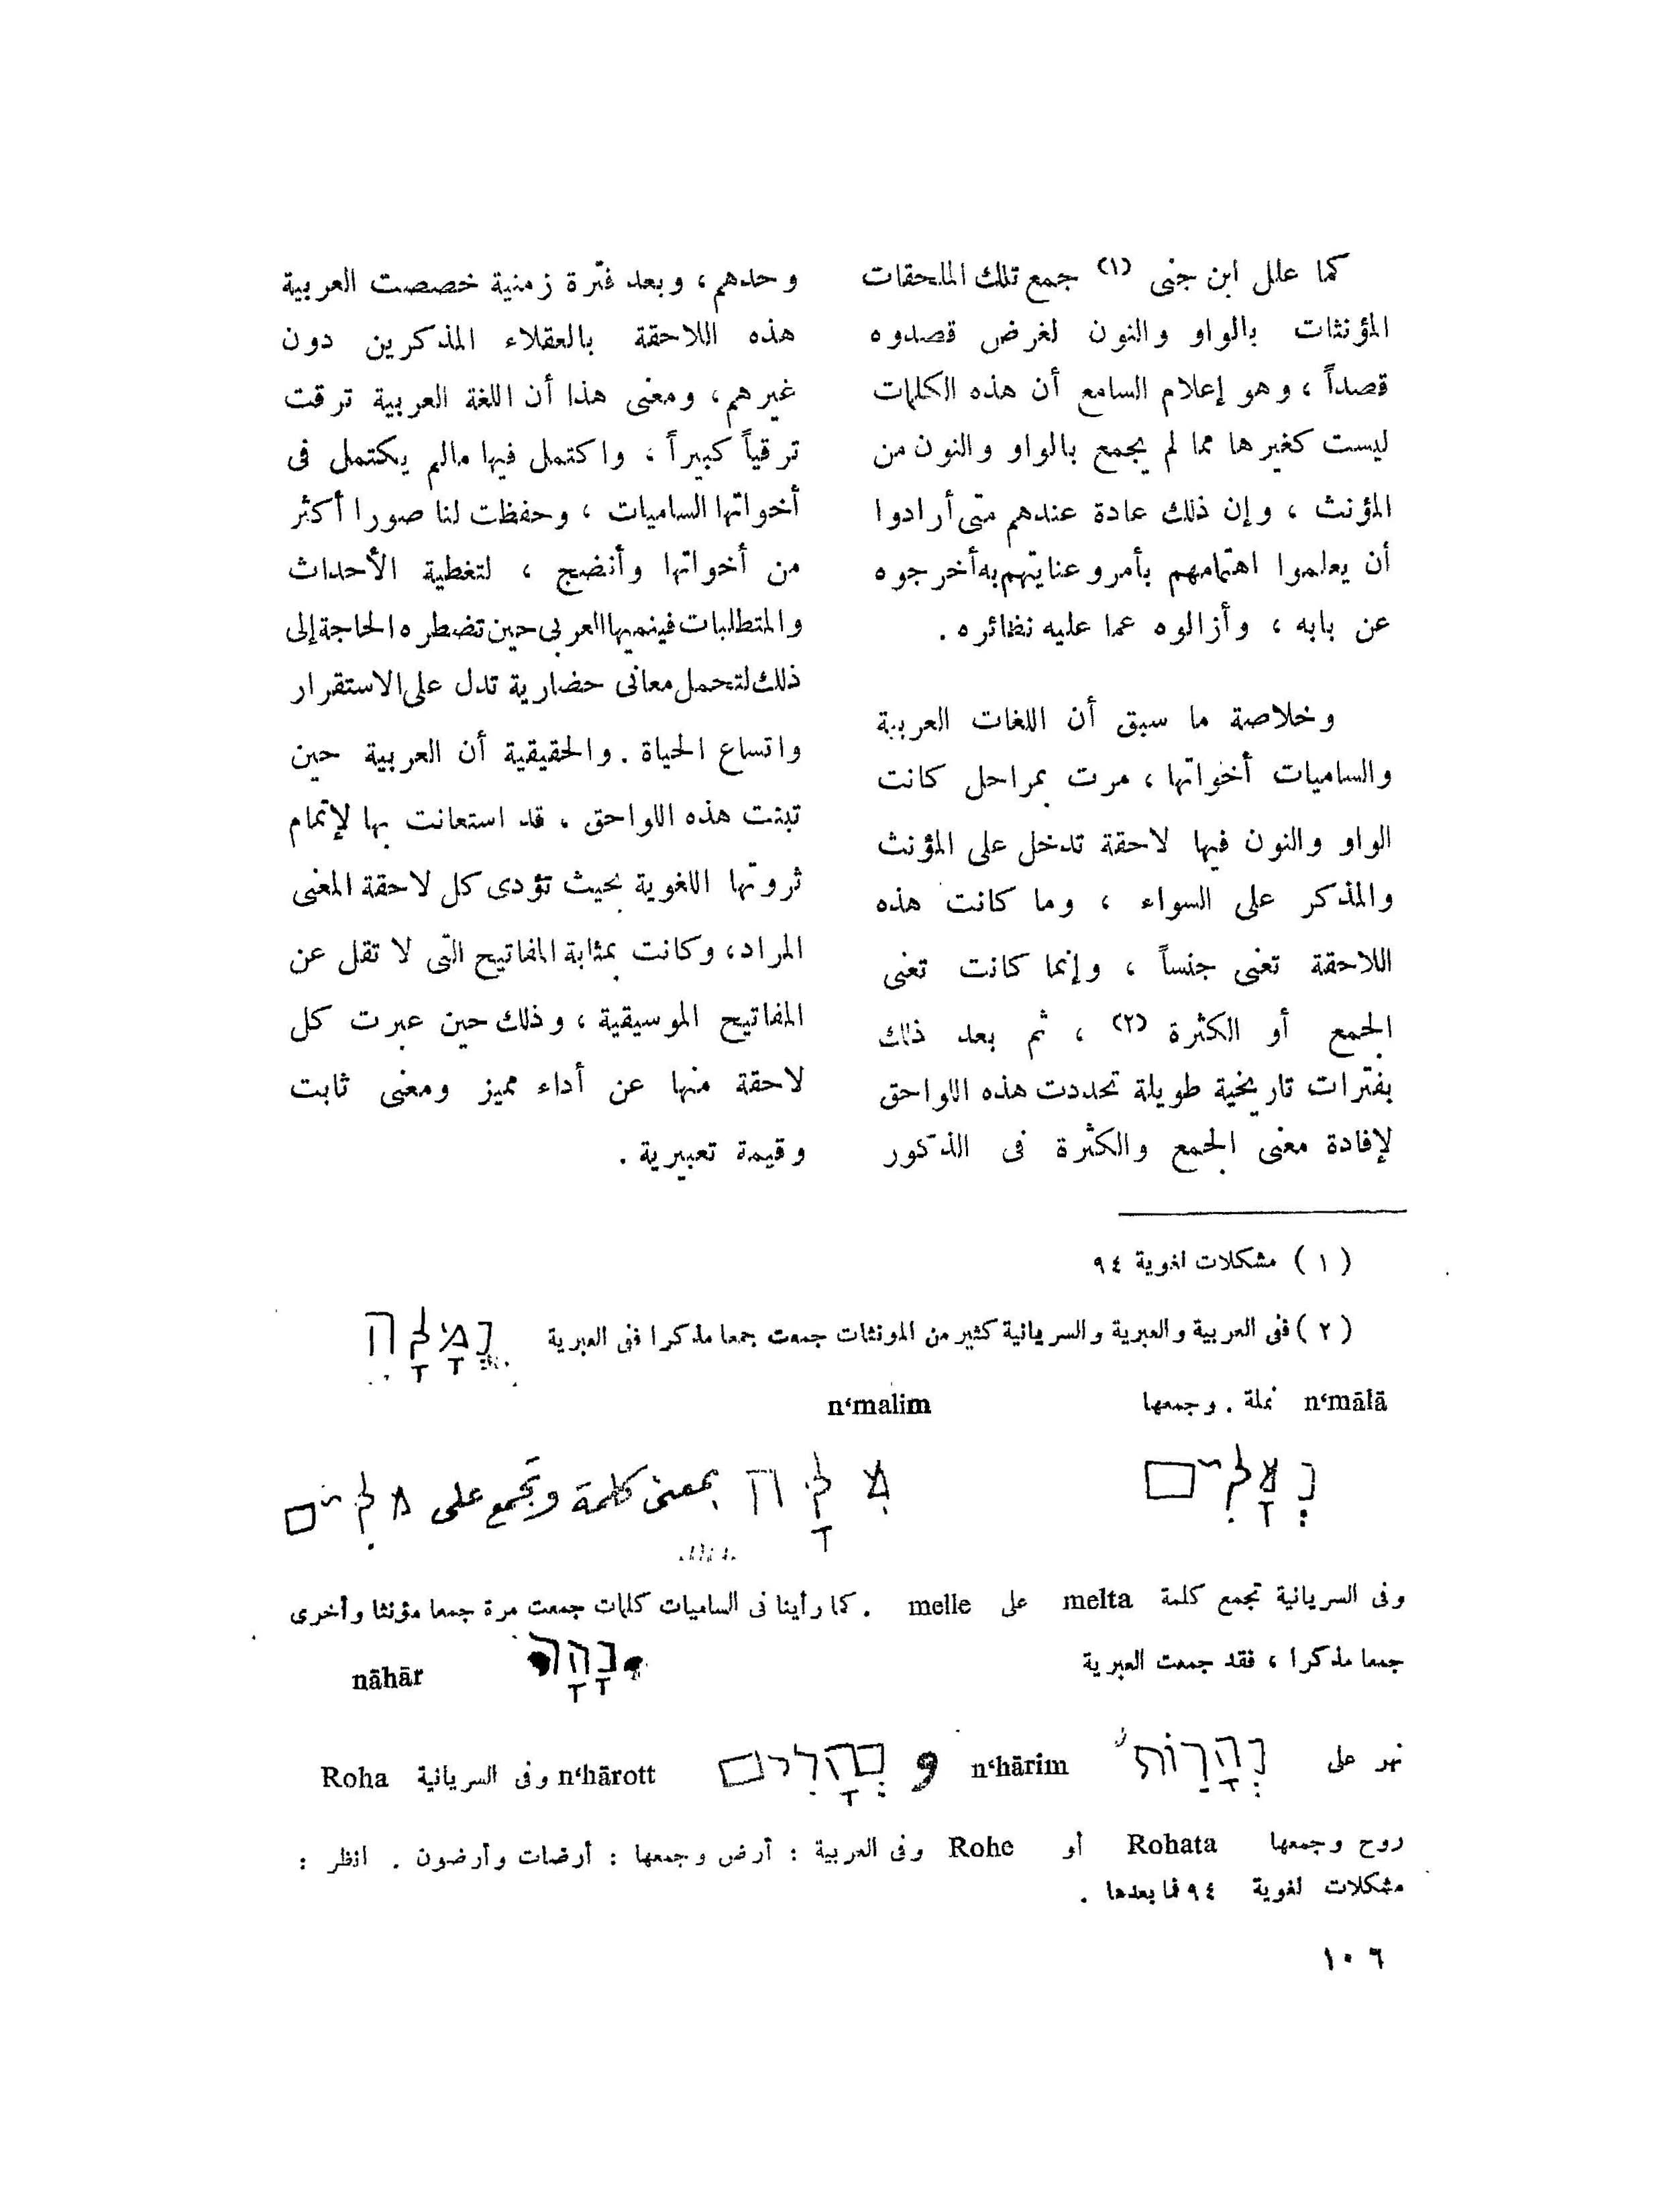 كما علل ابن جنى (١) جمع تلك الملحقات
المؤنثات بالواو والنون لغرض قصدوه
قصداً ، وهو إعلام السامع أن هذه الكلمات
ليست كغيرها مما لم يجمع بالواو والنون من
المؤنث ، وإن ذلك عادة عندهم متى أرادوا
أن يعلموا اهتمامهم بأمر وعنايتهم به أخرجوه
عن بابه ، وأزالوه عما عليه نظائره .
وخلاصة ما سبق أن اللغات العربية
والساميات أخواتها ، مرت بمراحل كانت
الواو والنون فيها لاحقة تدخل على المؤنث
والمذكر على السواء ، وما كانت هذه
اللاحقة تعنى جنساً ، وإنما كانت تعنى
الجمع أو الكثرة (٢) ، ثم بعد ذلك
بفترات تاريخية طويلة تحددت هذه اللواحق
لإفادة معنى الجمع والكثرة فى الذكور
وحدهم ، وبعد فترة زمنية خصصت العربية
هذه اللاحقة بالعقلاء المذكرين دون
غيرهم ، ومعنى هذا أن اللغة العربية ترقت
ترقياً كبيراً ، واكتمل فيها مالم يكتمل فى
أخواتها الساميات ، وحفظت لنا صورا أكثر
من أخواتها وأنضج ، لتغطية الأحداث
والمتطلبات فينميها العربى حين تضطره الحاجة إلى
ذلك لتحمل معانى حضارية تدل على الاستقرار
واتساع الحياة . والحقيقية أن العربية حين
تبنت هذه اللواحق . قد استعانت بها لإتمام
ثروتها اللغوية بحيث تؤدى كل لاحقة المعنى
المراد ، وكانت بمثابة المفاتيح التى لا تقل عن
المفاتيح الموسيقية ، وذلك حين عبرت كل
لاحقة منها عن أداء مميز ومعنى ثابت
وقيمة تعبيرية .
( ١ ) مشكلات لغوية ٩٤
( ٢ ) ففى العربية والعبرية والسريانية كثير من المونثات جمعت جمعا مذكرا ففى العبرية נְמָלָה
n‘mālā نملة . وجمعها n‘malim
נְמָלִים מִלָּה بمعنى كلمة وتجمع على מלִים
وفى السريانية تجمع كلمة melta على melle . كما رأينا فى الساميات كلمات جمعت مرة جمعا مؤنثا وأخرى
جمعا مذكرا ، فقد جمعت العبرية נָהָר nāhār
نهر على נְהָרוֹת n‘hārim و נְהָרִים n‘hārott وفى السريانية Roha
روح وجمعها Rohata أو Rohe وفى العربية : أرض وجمعها : أرضات وأرضون . انظر :
مشكلات لغوية ٩٤ فما بعدها .
١٠٦